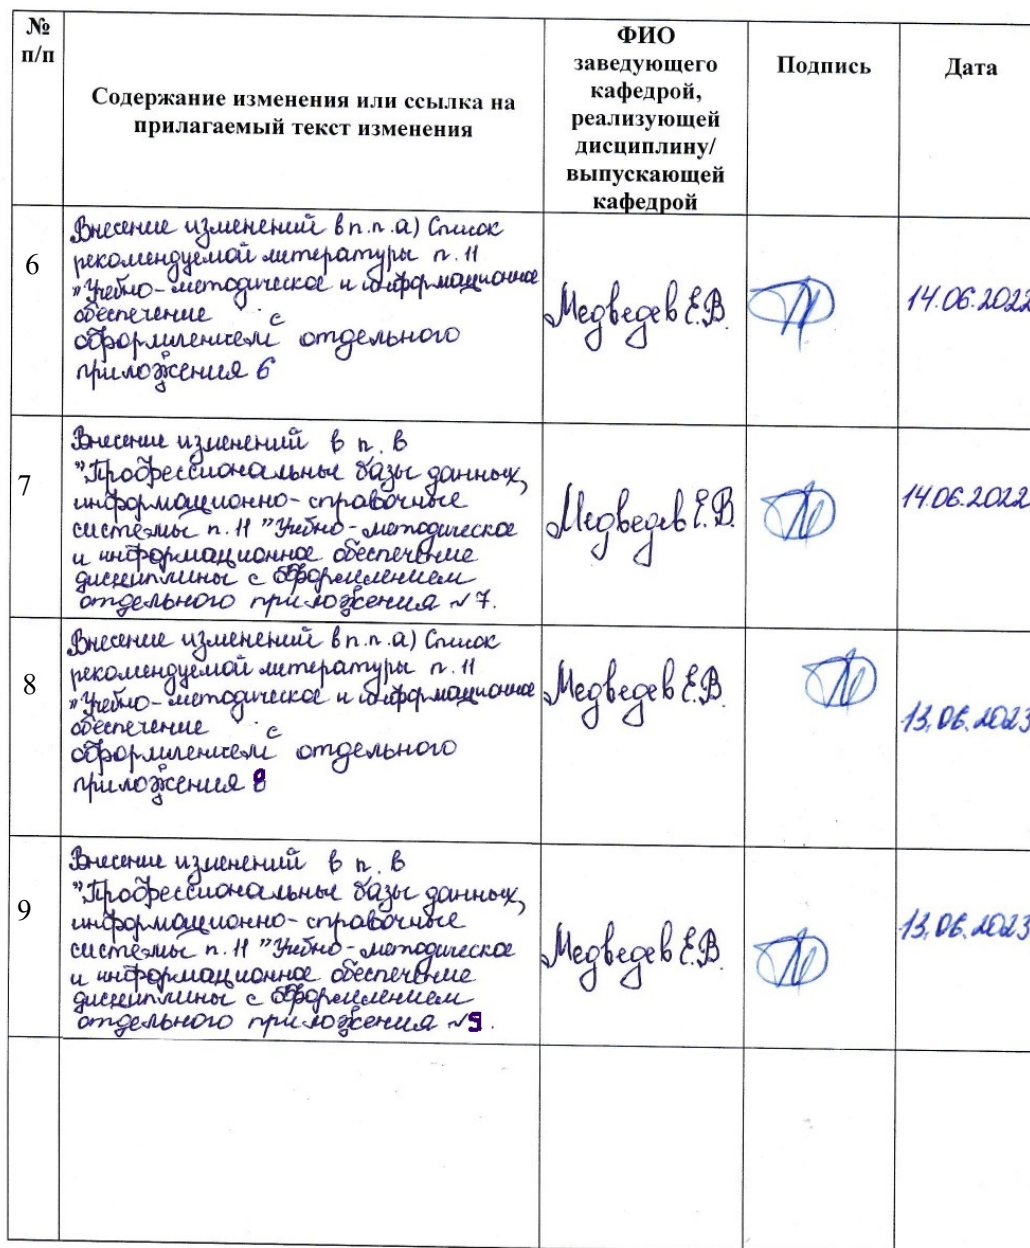 №
п/п
Содержание изменения или ссылка на
прилагаемый текст изменения
ФИО
заведующего
кафедрой,
реализующей
дисциплину/
выпускающей
кафедрой
Подпись
Дата
6
Внесение изменений в п.п.а) Список
рекомендуемой литературы п. 11
"Учебно-методическое и информационное
обеспечение
с
оформлением отдельного
приложения 6
Медведев Е.В.
14.06.2022
7
Внесение изменений в п. в
"Профессиональны базы данных,
информационно-справочные
системы п. 11 "Учебно-методическое
и информационное обеспечение
дисциплины с оформлением
отдельного приложения №7.
Медведев Е.В.
14.06.2022
8
Внесение изменений в п.п.а) Список
рекомендуемой литературы п. 11
"Учебно-методическое и информационное
обеспечение
с
оформлением отдельного
приложения 8
Медведев Е.В.
13.06.2023
9
Внесение изменений в п. в
"Профессиональны базы данных,
информационно-справочные
системы п. 11 "Учебно-методическое
и информационное обеспечение
дисциплины с оформлением
отдельного приложения №9.
Медведев Е.В.
13.06.2023